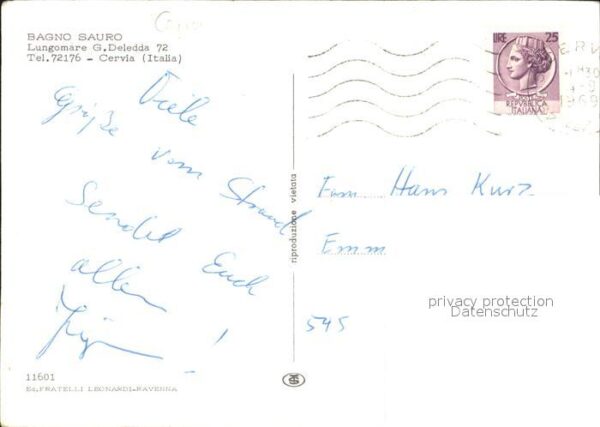 BAGNO SAURO
Lungomare G. Deledda 72
Tel. 72176 - Cervia (Italia)
Viele
Grüße
vom Strand
Sendet Euch
allen
!
11601
Ed. FRATELLI LEONARDI-RAVENNA
riproduzione vietata
LIRE 25
REPVBBLICA
ITALIANA
1969
Fam Hans Kurz
Emm
545
privacy protection
Datenschutz